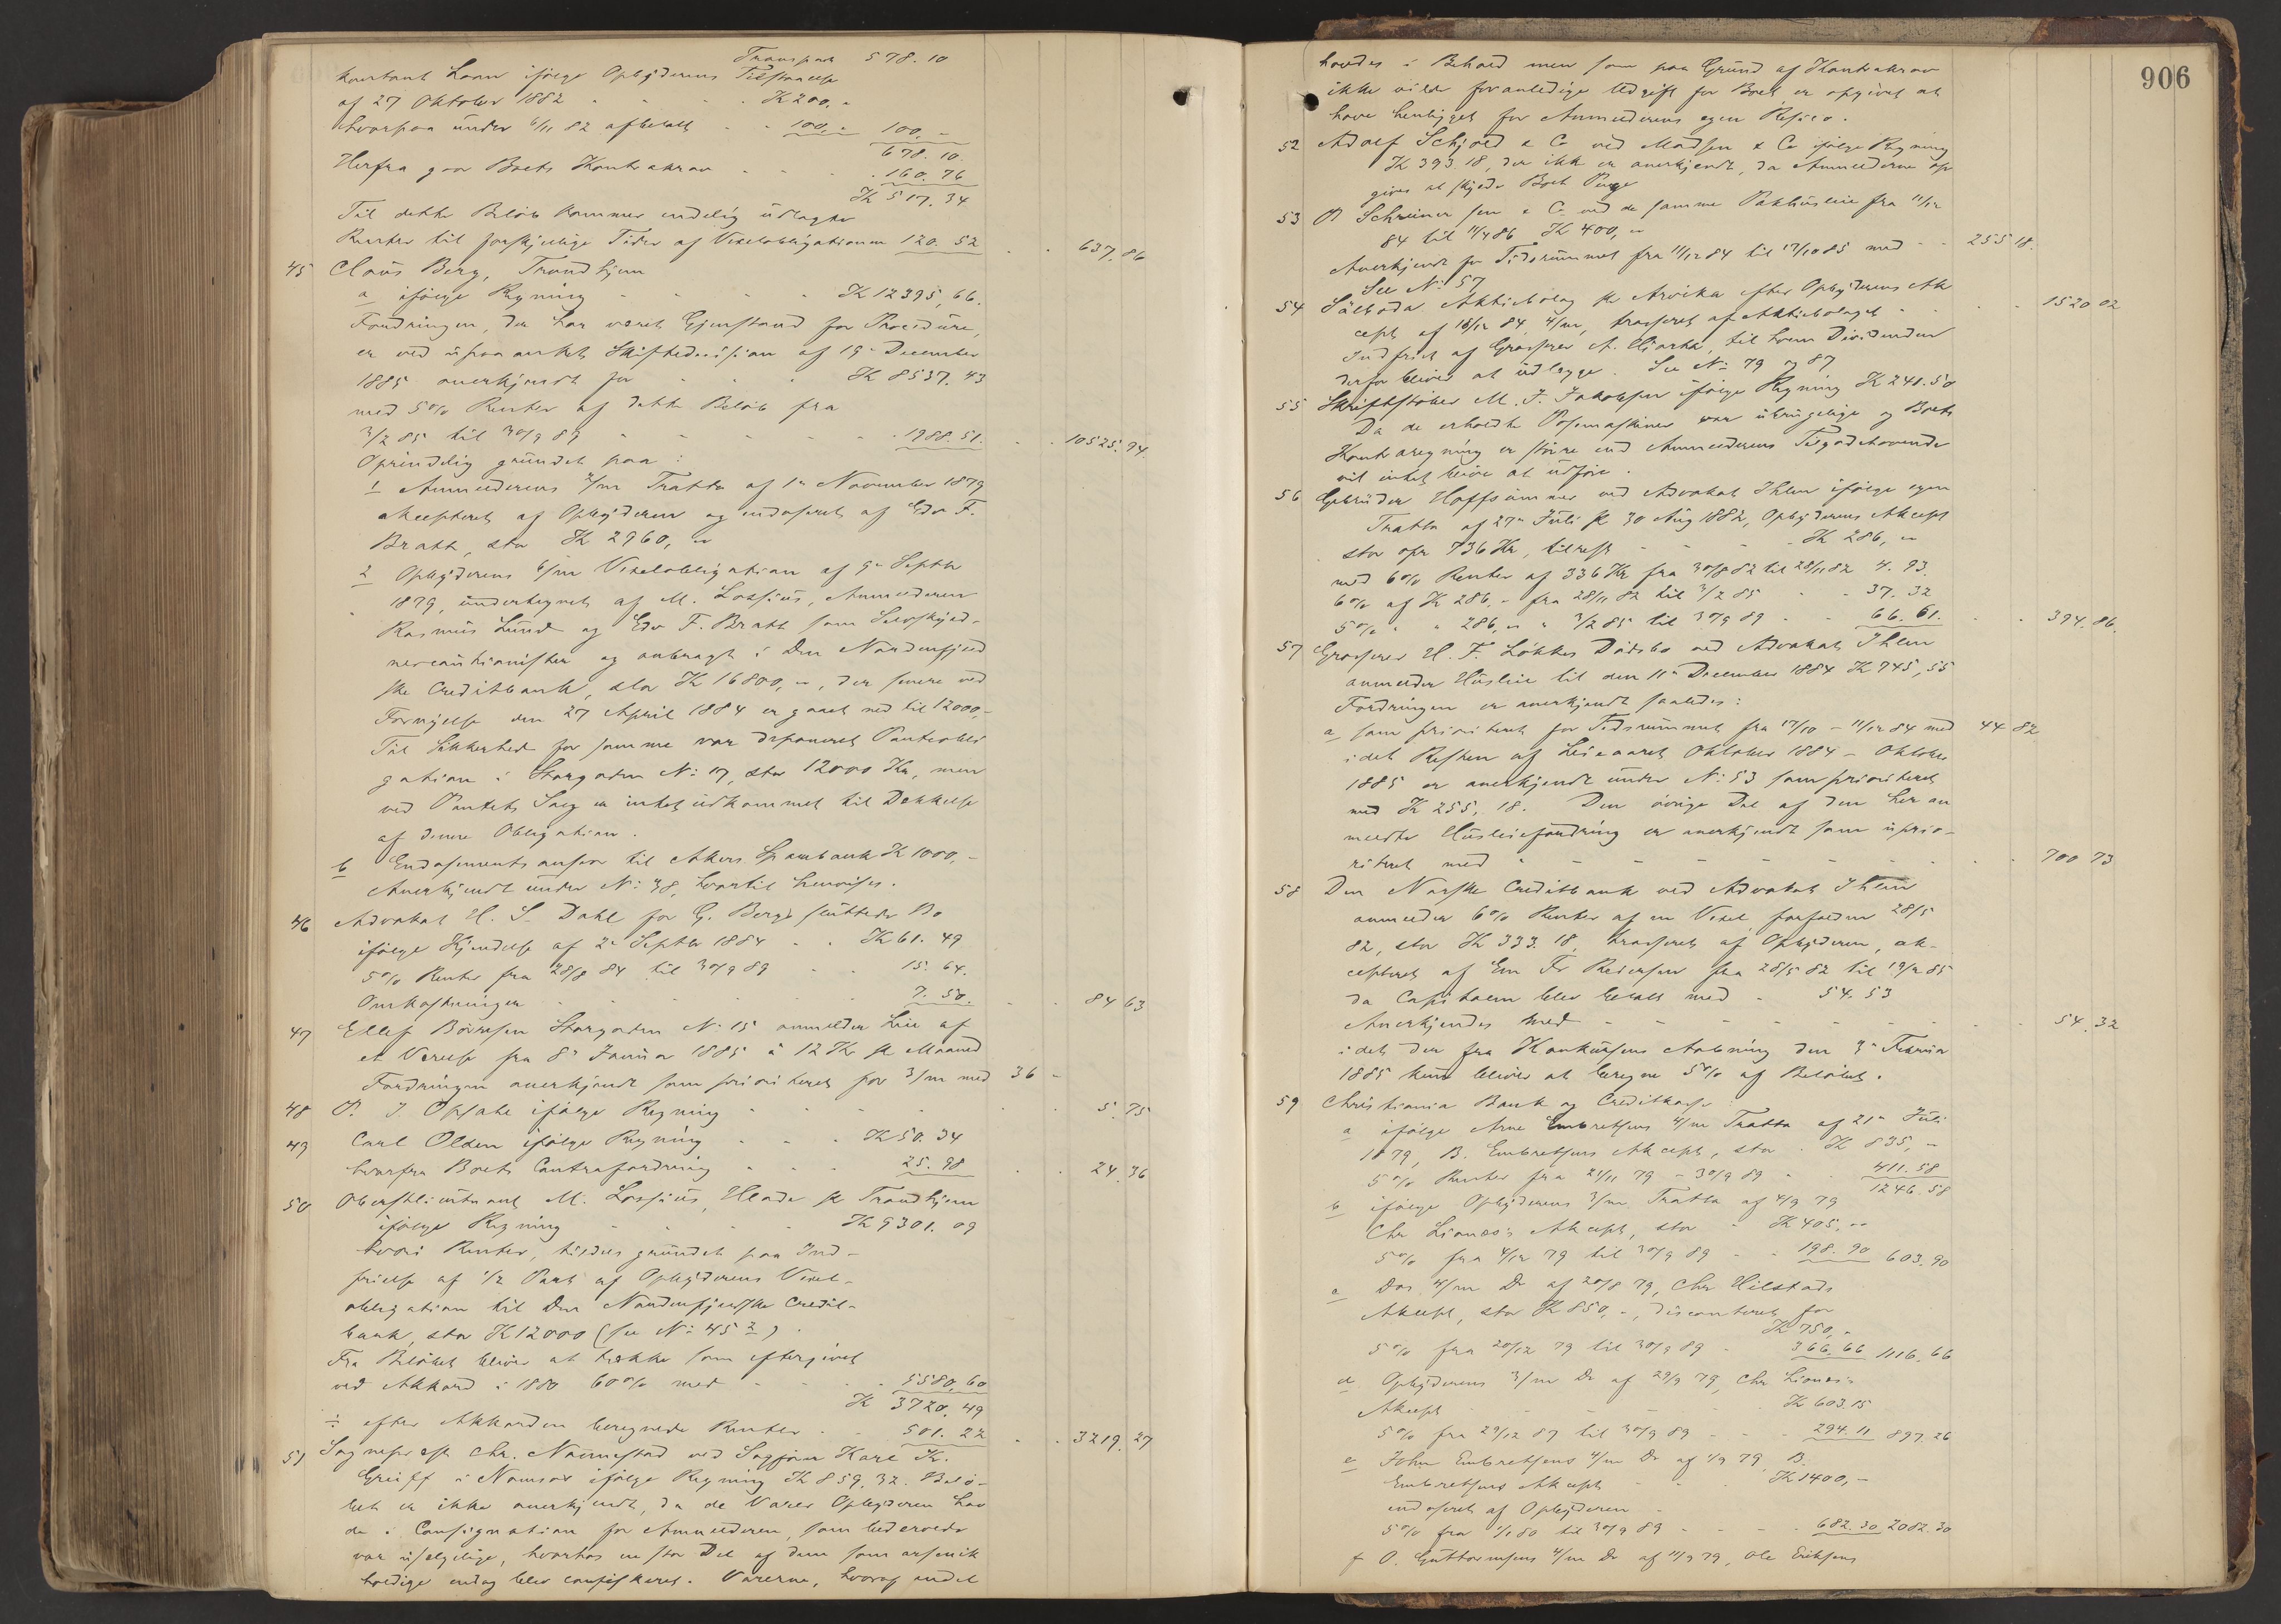 Transport 578. 10
kontant Laan ifølge Opbyderens Tilstaaelse
af 27 Oktober 1882 - - - - K 200. -
hvorpaa under 6/11 82 afbetalt - - 100. - 100. -
678. 10.
Herfra gaar Boets Kontrakrav - - - - 160. 76
K 517. 34
Til dette Beløb kommer endelig udlagte
Renter til forskjellige Tider af Vexelobligationen 120. 52 - - 637. 86
45 Claus Berg, Trondhjem
a ifølge Regning - - - - K 12395, 66.
Fordringen, der har været Gjenstand for Procedure,
er ved upaaanket Skiftedecision af 19de December
1885 anerkjendt for - - - K 8537, 43
med 5% Renter af dette Beløb fra
3/2 85 til 30/9 89 - - - - - - 1988. 51. - - 10525. 94.
Oprindelig grundet paa:
1 Anmelderens 4/m Tratte af 1ste November 1879
akcepteret af Opbyderen og endoseret af Edv F.
Bratt, stor K 2960, -
2 Opbyderens 6/m Vexelobligation af 9de Septbr
1879, undertegnet af M. Lossius, Anmelderen
Rasmus Lund og Edv F. Bratt som Selvskyld-
nercautionister og anbragt i Den Nordenfjeld
ske Creditbank, stor K 16800, -, der senere ved
Fornyelse den 27 April 1884 er gaaet ned til 12000, -
Til Sikkerhed for samme var deponeret Panteobli
gation i Storgaden No 17, stor 12000 Kr, men
ved Pantets Salg er intet udkommet til Dækkelse
af denne Obligation.
b Endosements ansvar til Akers Sparebank K 1000, -
Anerkjendt under No 38, hvortil henvises.
46 Advokat H. S. Dahl for G. Berges sluttede Bo
ifølge Kjendelse af 2den Septbr 1884 - - K 61. 49
5% Renter fra 28/8 84 til 30/9 89 - - 15. 64.
Omkostninger - - - - - - 7. 50. - - 84 63
47 Ellef Børresen Storgaden No 15 anmelder Leie af
et Værelse fra 8de Januar 1885 à 12 Kr pr Maaned
Fordringen anerkjendt som prioriteret for 3/m med 36 -
48 P. J. Opsahl ifølge Regning - - - - - - - 5. 75
49 Carl Olsen ifølge Regning - - - K 50. 34
hvorfra Boets Contrafordring - - - 25. 98 - - 24. 36
50 Oberstlieutnant M. Lossius, Hlade pr Trondhjem
ifølge Regning - - - - K 9301. 09
hvori Renter, tildels grundet paa Ind-
frielse af 1/2 Part af Opbyderens Vexel-
obligation til Den Nordenfjeldske Credit-
bank, stor K 12000 (see No 45 2).
Fra Beløbet bliver at trække som eftergivet
ved Akkord i 1880 60% med - - - - 5580, 60
K 3720, 49
÷ efter Akkorden beregnede Renter - - 501. 22 - - 3219. 27
51 Sogneprest Chr. Naumestad ved Sagfører Karl K.
Greiff i Namsos ifølge Regning K 859, 32. Belø-
bet er ikke anerkjendt, da de Varer Opbyderen hav
de i Consignation for Anmelderen, som bedærvede
var usælgelige, hvorhos en stor Del af dem som arsenik
holdige endog blev confiskeret. Varerne, hvoraf endel
906
havdes i Behold men som paa Grund af Kontrakrav
ikke vilde foranledige Udgift for Boet er opgivet at
have henligget for Anmelderens egen Risico.
52 Adolf Schjold & Co ved Madsen & Co ifølge Regning
K 393. 18, der ikke er anerkjendt, da Anmelderne op
gives at skylde Boet Penge
53 P Schreiner sen & Co ved de samme Pakhusleie fra 11/12
84 til 11/4 86 K 400, -
Anerkjendt for Tidsrummet fra 11/12 84 til 17/10 85 med - - 255 18.
See No 57
54 Sälboda Aktiebolag pr Arvika efter Opbyderens Ak
cept af 16/12 84, 4/m, trasseret af Aktiebolaget - - - - 1520 02
Indfriet af Grosserer A. Hjorth, til hvem Dividenden
derfor bliver at udlægge. See No 79 og 87
55 Skriftstøber M. J. Jakobsen ifølge Regning K 241. 50
Da de erholdte Posemaskiner var ubrugelige og Boets
Kontraregning er større end Anmelderens Tilgodehavende
vil intet blive at udføre.
56 Gebrüder Hoffsümmer ved Advokat Ihlen ifølge egen
Tratte af 27de Juli pr 30 Aug 1882, Opbyderens Akcept
stor opr 736 Kr, tilrest - - - - K 286, -
med 6% Renter af 336 Kr fra 30/8 82 til 28/11 82 4. 93.
6% af K 286, - fra 28/11 82 til 3/2 85 - - 37. 32
5% " " 286, - " 3/2 85 til 30/9 89 - - 66. 61. - - 394. 86.
57 Grosserer H. F. Løkkes Dødsbo ved Advokat Ihlen
anmelder Husleie til den 11te December 1884 K 745, 55
Fordringen er anerkjendt saaledes:
a som prioriteret for Tidsrummet fra 17/10 - 11/12 84 med 44 82
idet Resten af Leieaaret Oktober 1884 - Oktober
1885 er anerkjendt under No 53 som prioriteret
med K 255, 18. Den øvrige Del af den her an
meldte Husleiefordring er anerkjendt som uprio-
riteret med - - - - - - - - - - 700 73
58 Den Norske Creditbank ved Advokat Ihlen
anmelder 6% Renter af en Vexel, forfalden 28/5
82, stor K 333. 18, trasseret af Opbyderen, ak-
cepteret af Em Fr Pedersen fra 28/5 82 til 19/2 85
da Capitalen blev betalt med - 54. 53
Anerkjendes med - - - - - - - - - 54. 32
idet der fra Konkursens Aabning den 3die Februar
1885 kun bliver at beregne 5% af Beløbet.
59 Christiania Bank og Creditkasse:
a ifølge Arne Embretsens 4/m Tratte af 21de Juli
1879, B. Embretsens Akcept, stor - K 835, -
5% Renter fra 21/11 79 - 30/9 89 - - 411. 58
1246. 58
b ifølge Opbyderens 3/m Tratte af 4/9 79
Chr Lionæs's Akcept, stor - K 405, -
5% fra 4/12 79 til 30/9 89 - - 198. 90 603. 90
c Dos 4/m Do af 20/8 79, Chr Hilstads
Akcept, stor K 850, -, disconteret for
K 750, -
5% fra 20/12 79 til 30/9 89 - 366. 66 1116. 66
d Opbyderens 3/m Do af 29/9 79, Chr Lionæs's
Akcept - - - - - - K 603. 15
5% fra 29/12 87 til 30/9 89 - - - 294. 11 897. 26
e John Embretsens 4/m Do af 1/9 79, B.
Embretsens Akcept - - - K 1400, -
endoseret af Opbyderen -
5% fra 1/1 80 til 30/9 89 - - - - 682. 30 2082. 30
f O. Guttormsens 4/m Do af 11/9 79, Ole Eriksens